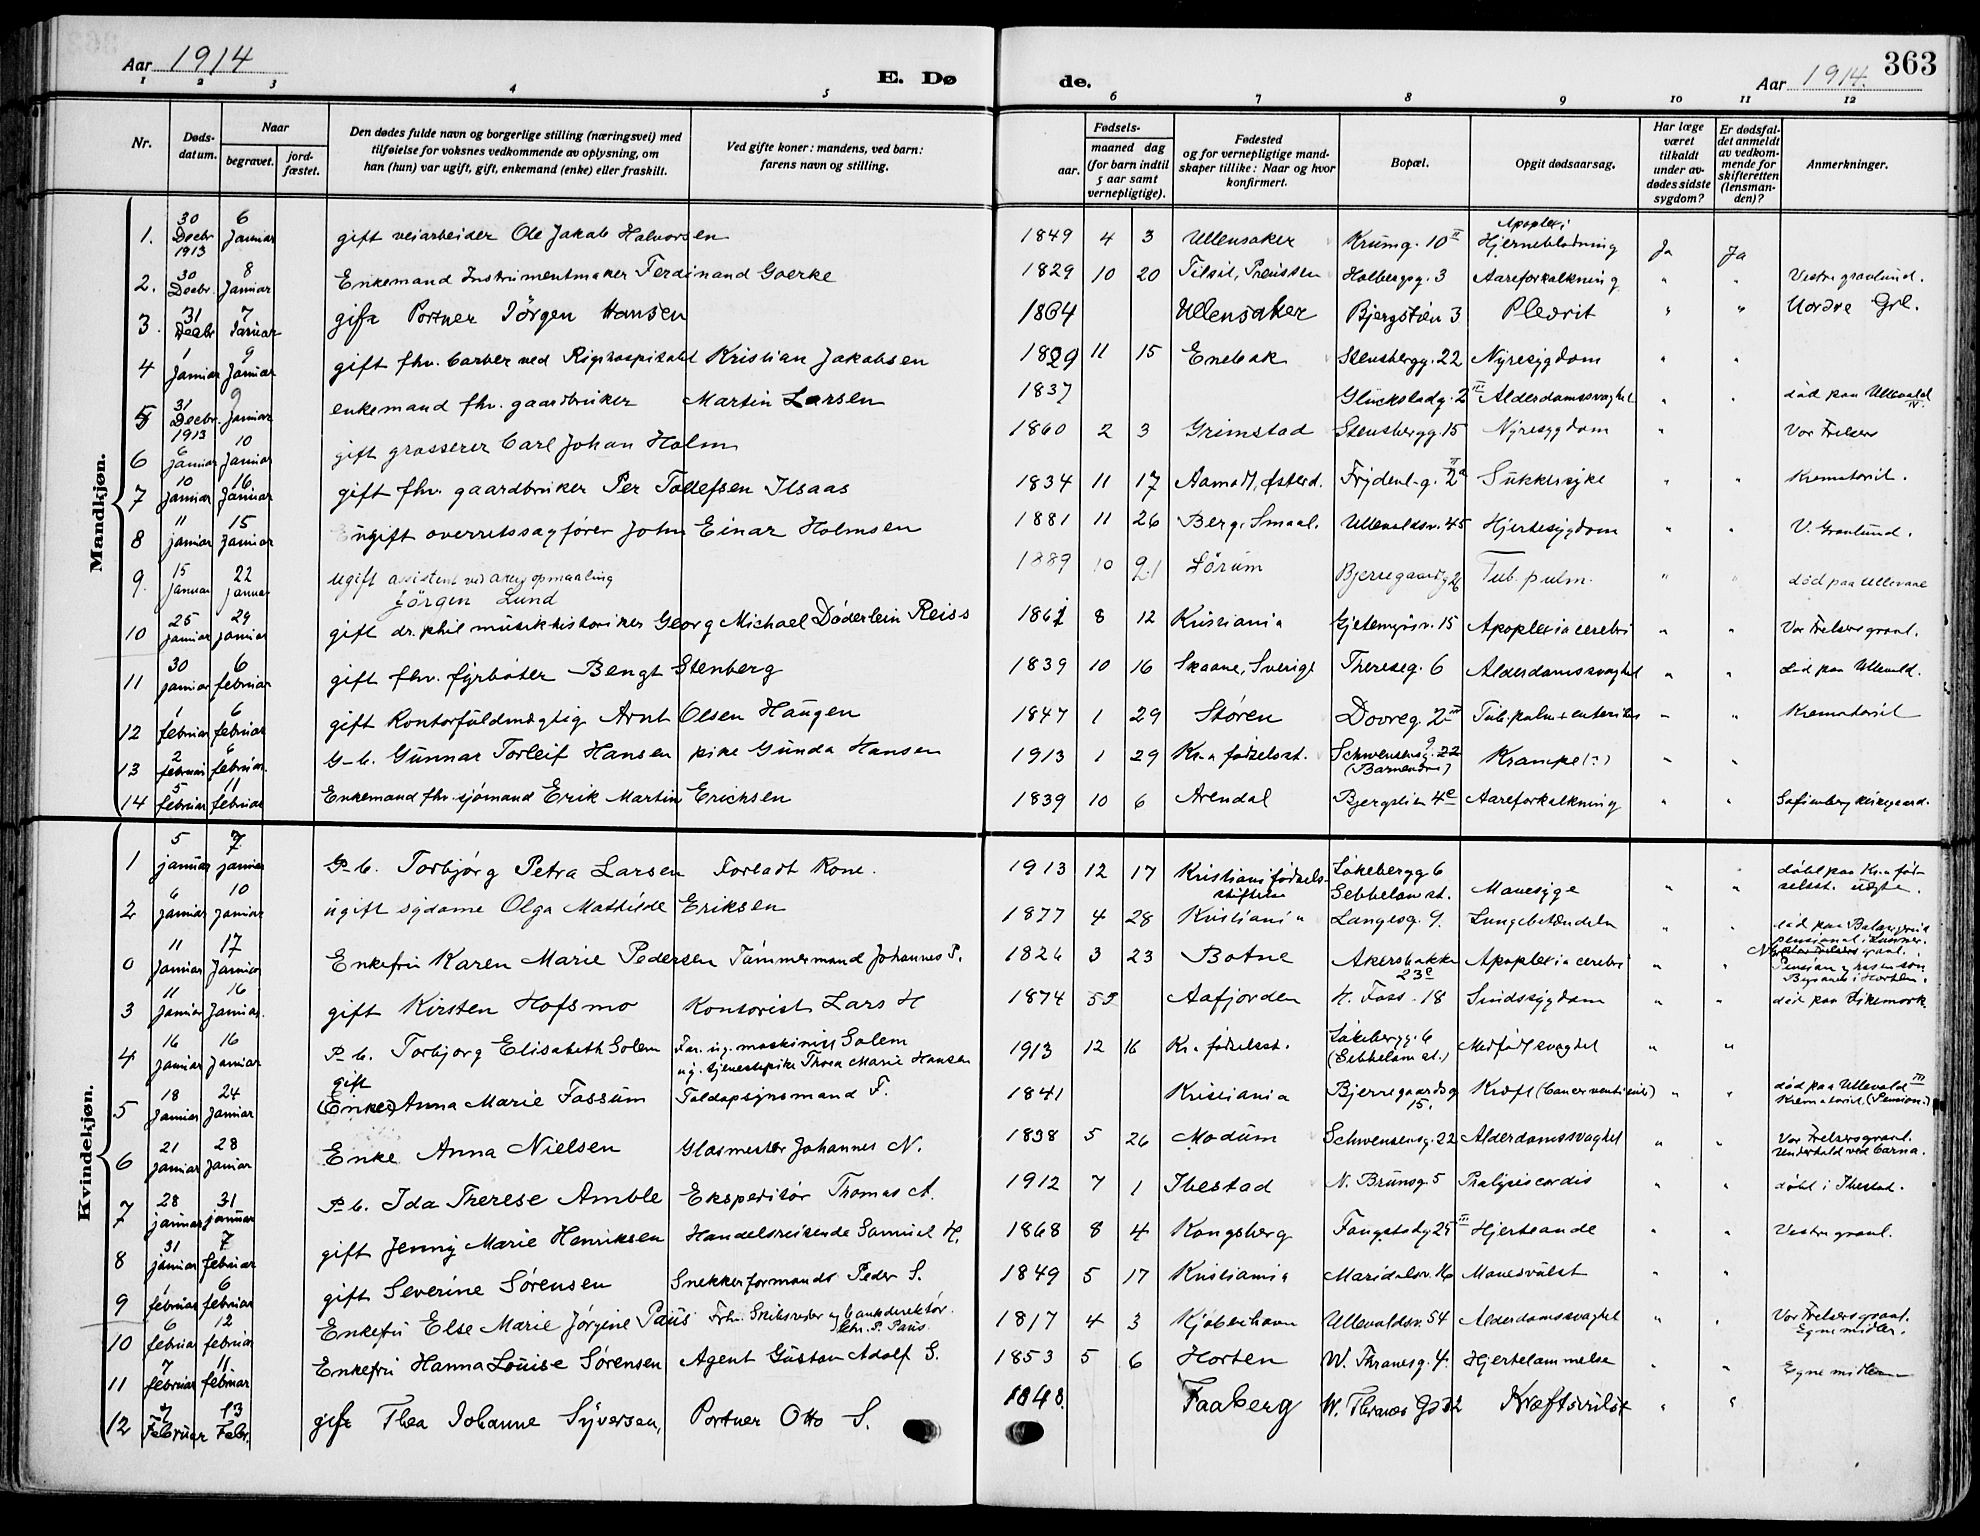 Aar 1914
E. Dø
de.
Aar 1914.
363
1 2 3 4 5 6 7 8 9 10 11 12
Nr.
Døds-datum.
Naar
begravet.
jord-fæstet.
Den dødes fulde navn og borgerlige stilling (næringsvei) med
tilføielse for voksnes vedkommende av oplysning, om
han (hun) var ugift, gift, enkemand (enke) eller fraskilt.
Ved gifte koner: mandens, ved barn:
farens navn og stilling.
Fødsels-
aar.
maaned dag
(for barn indtil
5 aar samt
vernepligtige).
Fødested
og for vernepligtige mand-
skaper tillike: Naar og hvor
konfirmert.
Bopæl.
Opgit dødsaarsag.
Har læge
været
tilkaldt
under av-
dødes sidste
sygdom?
Er dødsfal-
det anmeldt
av vedkom-
mende for
skifteretten
(lensman-
den)?
Anmerkninger.
Mandkjøn.
1. 30 Decbr 1913 6 Januar gift veiarbeider Ole Jakob Halvorsen 1849 4 3 Ullensaker Krumg. 10 II Apoplexi Hjerneblødning Ja Ja
2. 30 Decbr. 8 Januar Enkemand Instrumentmaker Ferdinand Goerke 1829 10 20 Tilsit, Preussen Holbergsg. 3 Aareforkalkning " " Vestre gravlund.
3. 31 Decbr 7 Januar gift Portner Jörgen Hansen 1864 Ullensaker Bjergstien 3 Pleorit " " Nordre Grl.
4 1 Januar 9 Januar gift fhv. barber ved Rigshospitalet Kristian Jakobsen 1829 11 15 Enebak Stensbergg. 22 Nyresygdom " "
5 31 Decbr. 1913 9 Januar enkemand fhv. gaardbruker Martin Larsen 1837 Glückstadg. 2 III Alderdomssvaghet " " død paa Ullevaal IV.
6 6 januar 10 januar gift grosserer Carl Johan Holm 1860 2 3 Grimstad Stensbergg. 15 Nyresygdom " Vor Frelsers
7 10 januar 16 januar gift fhv. gaardbruker Per Tollefsen Ilsaas 1834 11 17 Aamodt, Østerd. Frydenl.g. 2a II Sukkersyke " " Krematoriet.
8 11 januar 15 januar ugift overretssagfører John Einar Holmsen 1881 11 26 Berg, Smaal. Ullevaldsv. 45 Hjertesygdom " " V. Gravlund.
9. 15 januar 22 januar ugift assistent ved opmaaling Jörgen Lund 1889 10 21 Sörum Bjerregaardsg 26 Tub. pulm. " " død paa Ullevaal
10 25 januar 29 januar gift dr. phil musikhistoriker Georg Michael Döderlein Reiss 1861 8 12 Kristiania Gjetemyrsv. 15 Apoplexia cerebri " " Vor Frelsers gravl.
11 30 januar 6 februar gift fhv. fyrbøter Bengt Stenberg 1839 10 16 Skaane, Sverige Thereseg. 6 Alderdomssvaghet " " død paa Ullevald.
12 1 februar 6 februar gift Kontorfuldmægtig Arnt Olsen Haugen 1847 1 29 Støren Dovreg. 2 III Tub. pulm + enteritis " " Krematoriet
13 2 februar 6 februar. G-b. Gunnar Torleif Hansen pike Gunda Hansen 1913 1 29 Kr.a fødselsst. Schwensensg. 22 9 Krampe (?) " "
14 5 februar 11 februar Enkemand fhv. sjømand Erik Martin Erichsen 1839 10 6 Arendal Bjergstien 4e Aareforkalkning " " Sofienberg kirkegaard.
Kvindekjøn.
1 5 januar 7 januar P-b. Torbjørg Petra Larsen Forladt Kone. 1913 12 17 Kristiania fødsels-stiftelse Lakkebergg 6 Sebbelow st. Mavesyge " " døbt paa Kr.a fødselsst. uegte.
2 6 januar 10 januar ugift sydame Olga Mathilde Eriksen 1877 4 28 Kristiania Langesg. 9. Lungebetændelse "
0 11 januar 17 januar Enkefru Karen Marie Pedersen Tømmermand Johannes P. 1826 3 23 Botne Akersbakke 23e Apoplexia cerebri " "
3 11 januar 16 januar. gift Kirsten Hofsmo Kontorist Lars H 1874 Aafjorden H. Foss. 18 Sindssygdom " " død paa Dikemark.
4 16 januar 16 januar P-b. Torbjorg Elisabeth Solem Far. ug. maskinist Solem ug. tjenestepike Thora Marie Hansen 1913 12 16 Kr.a fødselsst. Lakkebergg. 6 (Sebbelow st.) Medfødt svaghet " "
5 18 januar 24 januar gift (Enke) Anna Marie Fossum Toldopsynsmand F. 1841 Kristiania Bjerregaardsg 15. Kræft (Cancer ventriculi) " " død paa Ullevald III Krematoriet (Pension.)
6 21 januar 28 januar Enke Anna Nielsen Glasmester Johannes N. 1838 5 26 Modum Schwensensg. 22 Alderdomssvaghet " " Vor Frelsers gravl. Underhold ved barna.
7 28 januar 31 januar P-b. Ida Therese Amble Ekspeditör Thomas A. 1912 7 1 Ibestad N. Brunsg. 5 Paralysis cordis " " døbt i Ibestad.
8 31 januar 7 februar gift Jenny Marie Henriksen Handelsreisende Samuel H. 1868 8 4 Kongsberg Hjerteonde " " Vestre gravl.
9 1 februar 6 februar gift Severine Sörensen Snekkerformand Peder S. 1849 5 17 Kristiania Maridalsv. 16 Mavesvulst " "
10 6 februar 12 februar Enkefru Else Marie Jørgine Paus Fhv. Skibsreder og bankdirektör Chr. P. Paus. 1817 4 3 Kjøbenhavn Ullevaldsv. 54 Alderdomssvaghet " " Vor Frelsers gravl. Egne midler.
11 7 februar 11 februar Enkefru Hanna Louise Sørensen Agent Gustav Adolf S. 1853 5 6 Horten W. Thranesg. 4. Hjertelammelse " " Egne midler
12 7 Februar 13 Febr. gift Thea Johanne Syversen, Portner Otto S. 1848. Faaberg W. Thranes G 32 Kræftsvulst " "